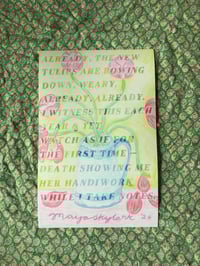 ALREADY, THE NEW
TULIPS ARE BOWING
DOWN, WEARY.
ALREADY, ALREADY.
I WITNESS THIS EACH
YEAR & YET
WATCH AS IF FOR
THE FIRST TIME –
DEATH SHOWING ME
HER HANDIWORK
WHILE I TAKE NOTES.